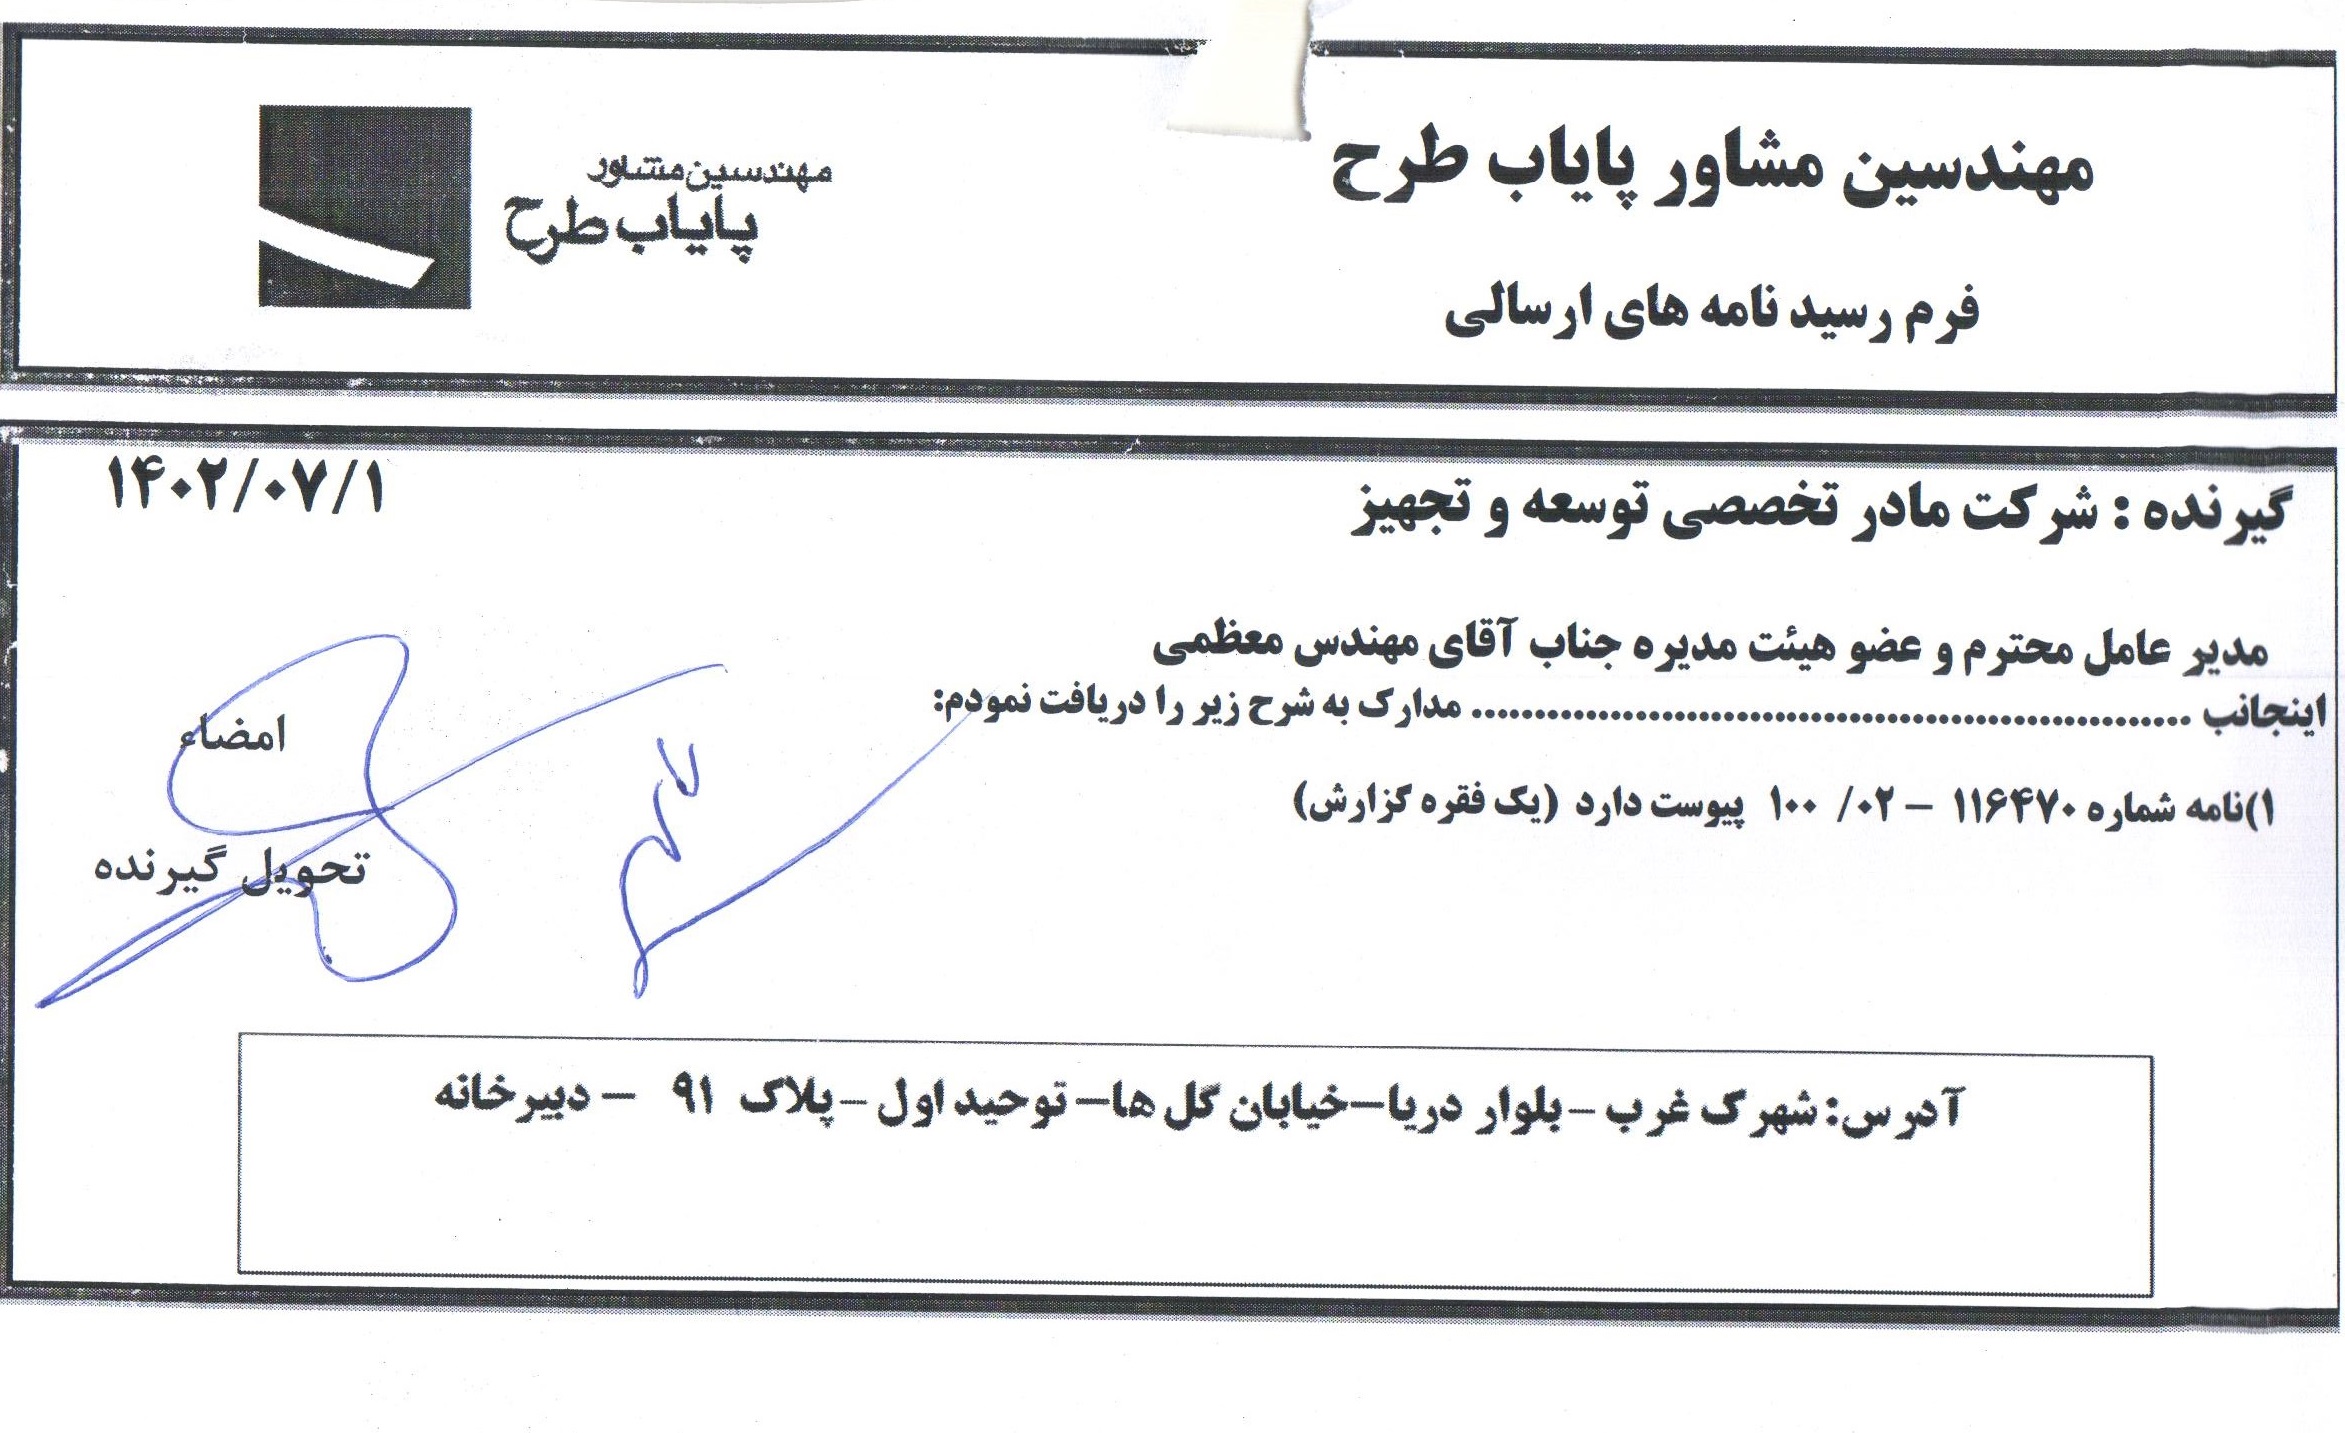 مهندسین مشاور پایاب طرح
مهندسین مشاور
پایاب طرح
فرم رسید نامه های ارسالی
گیرنده : شرکت مادر تخصصی توسعه و تجهیز
۱۴۰۲/۰۷/۱
مدیر عامل محترم و عضو هیئت مدیره جناب آقای مهندس معظمی
اینجانب ............................................................ مدارک به شرح زیر را دریافت نمودم:
امضاء
۱)نامه شماره ۱۱۶۴۷۰ – ۰۲/ ۱۰۰ پیوست دارد (یک فقره گزارش)
تحویل گیرنده
آدرس: شهرک غرب –بلوار دریا–خیابان گل ها– توحید اول –پلاک ۹۱ – دبیرخانه